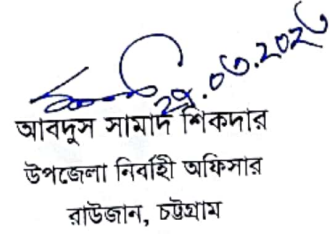 ২৯.০৩.২০২৩
আবদুস সামাদ শিকদার
উপজেলা নির্বাহী অফিসার
রাউজান, চট্টগ্রাম